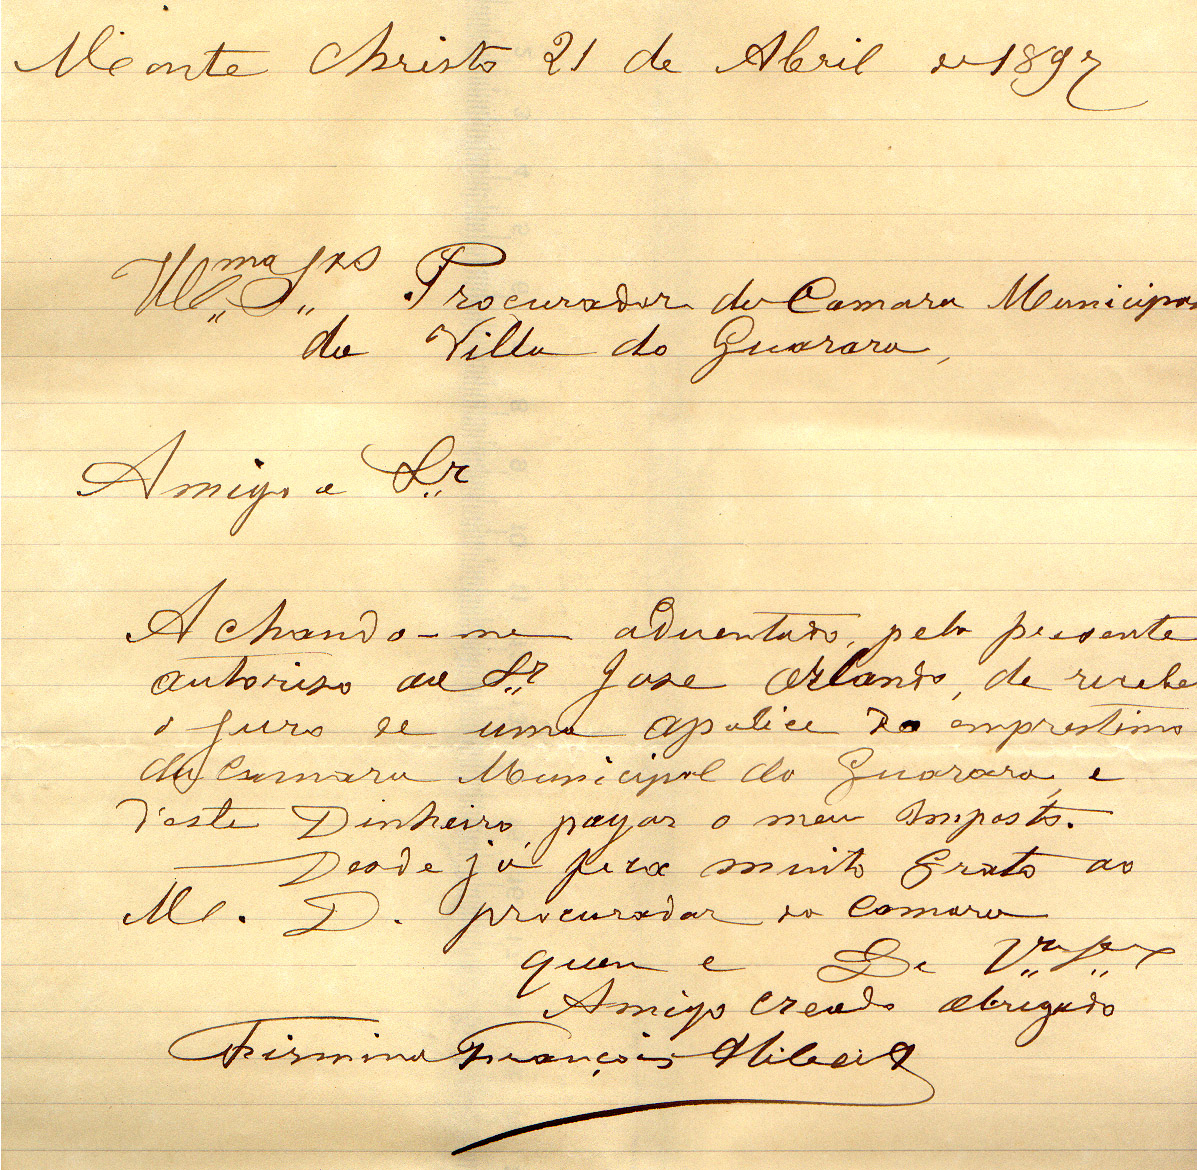 Monte Christo 21 de Abril de 1897
Ill.ma Snrs Procurador da Camara Municipal
da Villa do Guarara,
Amigo e Sr
Achando-me aduentado, pelo presente
autoriso ao Sr Jose Orlando, de recebe
o juro de uma apolice do emprestimo
da Camara Municipal do Guarara, e
d'este Dinheiro pagar o meu Imposto.
Desde já sera muito Grato ao
M. D. procurador da Camara
quem e De
Amigo Creado Obrigado
Firmino François